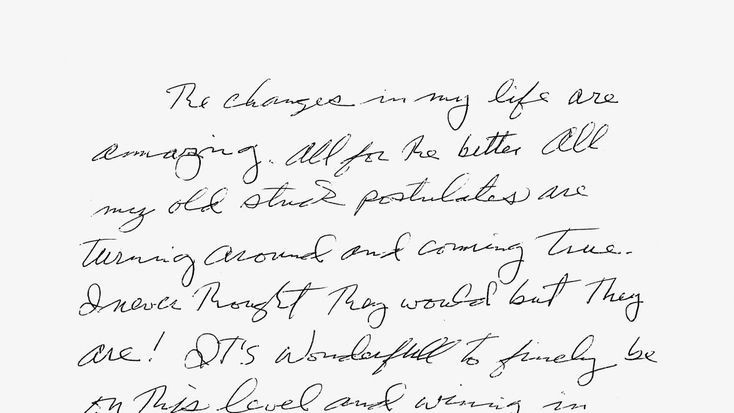 The changes in my life are
ammazing. All for the better All
my old stuck postulates are
turning around and coming true.
I never thought they would but they
are! IT'S Wonderfull to finely be
on this level and wining in